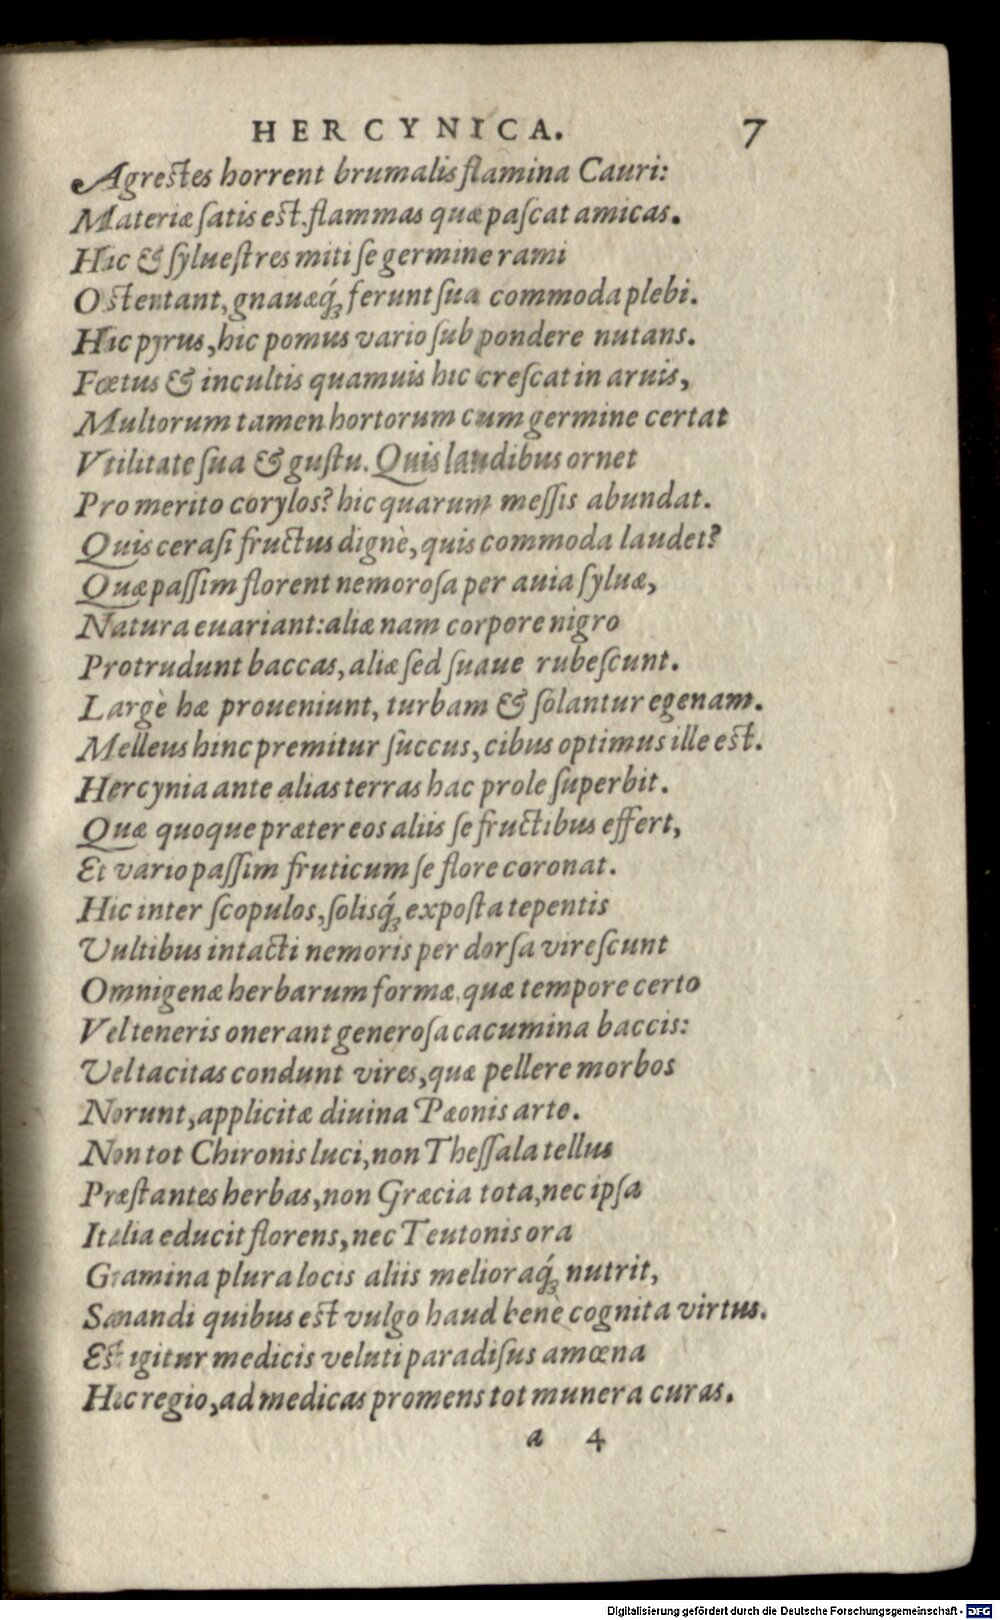 HERCYNICA. 7
Agrestes horrent brumalis flamina Cauri:
Materiæ ſatis est, flammas quæ paſcat amicas.
Hic & ſylueſtres miti ſe germine rami
Ostentant, gnauæq́ꝫ ferunt ſua commoda plebi.
Hic pyrus, hic pomus vario ſub pondere nutans.
Fœtus & incultis quamuis hic creſcat in aruis,
Multorum tamen hortorum cum germine certat
Vtilitate ſua & guſtu. Quis laudibus ornet
Pro merito corylos? hic quarum meſſis abundat.
Quis ceraſi fructus dignè, quis commoda laudet?
Quæ paſſim florent nemoroſa per auia ſyluæ,
Natura euariant: aliæ nam corpore nigro
Protrudunt baccas, aliæ ſed ſuaue rubeſcunt.
Largè hæ proueniunt, turbam & ſolantur egenam.
Melleus hinc premitur ſuccus, cibus optimus ille est.
Hercynia ante alias terras hac prole ſuperbit.
Quæ quoque præter eos aliis ſe fructibus effert,
Et vario paſſim fruticum ſe flore coronat.
Hic inter ſcopulos, ſolisq́ꝫ expoſta tepentis
Vultibus intacti nemoris per dorſa vireſcunt
Omnigenæ herbarum formæ, quæ tempore certo
Vel teneris onerant generoſa cacumina baccis:
Vel tacitas condunt vires, quæ pellere morbos
Norunt, applicitæ diuina Pæonis arte.
Non tot Chironis luci, non Theſſala tellus
Præſtantes herbas, non Græcia tota, nec ipſa
Italia educit florens, nec Teutonis ora
Gramina plura locis aliis melioraq́ꝫ nutrit,
Sanandi quibus est vulgo haud benè cognita virtus.
Est igitur medicis veluti paradiſus amœna
Hæc regio, ad medicas promens tot munera curas.
a 4
Digitalisierung gefördert durch die Deutsche Forschungsgemeinschaft - DFG